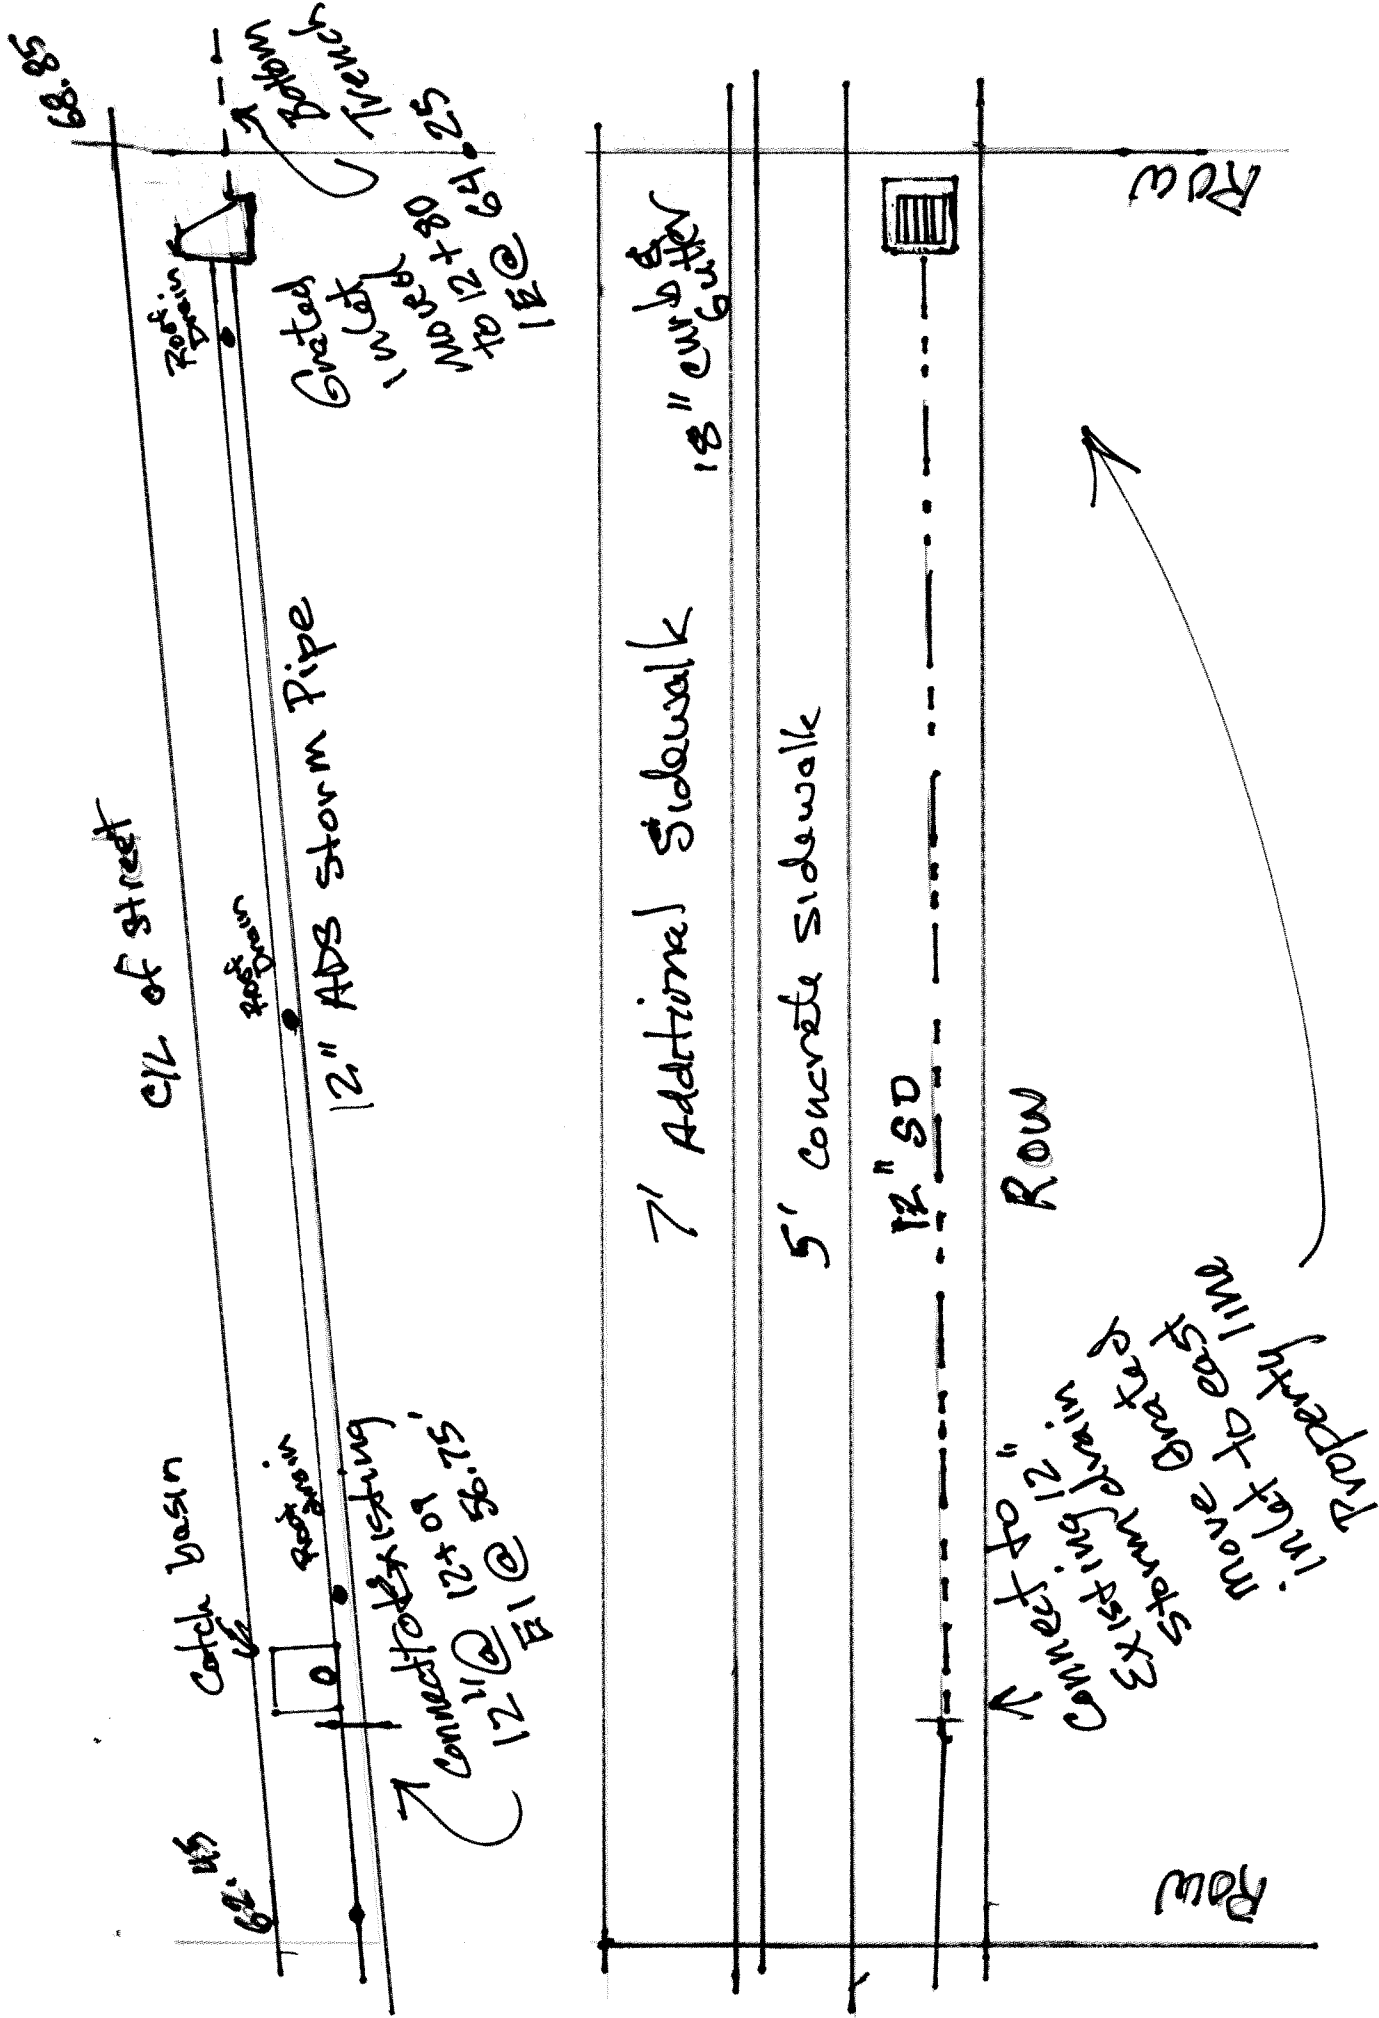 68.85
Bottom
Trench
Roof
Drain
Grated
inlet
moved
to 12+80
IE@ 64.25
C/L of street
Roof
Drain
12" ADS Storm Pipe
Catch basin
Roof
Drain
Connect to Existing
12"@ 12+09
12" EI@ 56.75'
62.45
18" curb &
Gutter
7' Additional Sidewalk
5' concrete sidewalk
12" SD
ROW
ROW
ROW
Connect to
Existing 12"
storm drain
move Grated
inlet to east
Property line